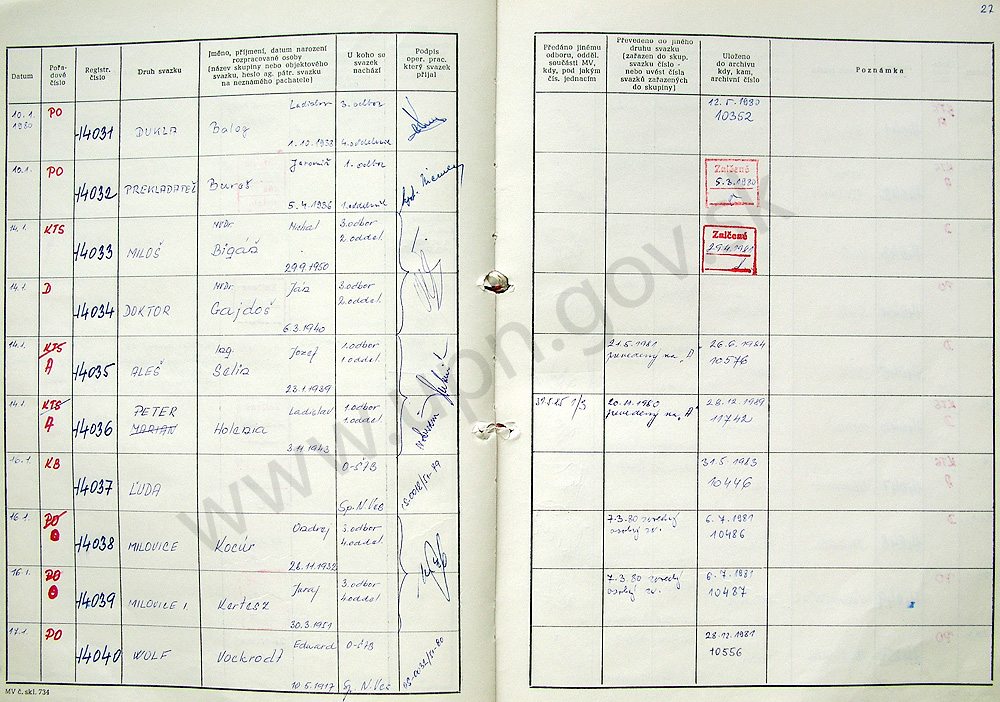 27
Datum
Pořadové číslo
Registr. číslo
Druh svazku
Jméno, příjmení, datum narození
rozpracované osoby
(název skupiny nebo objektového
svazku, heslo ag. pátr. svazku
na neznámého pachatele)
U koho se
svazek
nachází
Podpis
oper. prac.
který svazek
přijal
Předáno jinému
odboru, odděl.
součásti MV,
kdy, pod jakým
čís. jednacím
Převedeno do jiného
druhu svazku
(zařazen do skup.
svazku číslo -
nebo uvést čísla
svazků zařazených
do skupiny)
Uloženo
do archivu
kdy, kam,
archivní číslo
Poznámka
10.1. 1980 PO 14031 DUKLA Balog Ladislav 1.10.1938 3. odbor 12.5.1980 10352
10.1. PO 14032 PREKLADATEĽ Bureš 5.4.1936 1. odbor Zničené 5.3.1980
14.1. KTS 14033 MILOŠ MUDr. Michal Bigáš 29.9.1950 3.odbor 2.oddel. Zničené 29.4.1981
14.1. D 14034 DOKTOR MUDr. Ján Gajdoš 6.3.1940 3.odbor 2.oddel.
14.1. KTS A 14035 ALEŠ Ing. Jozef 23.1.1939 1.odbor 1.oddel. 21.5.1981 prevedený na "A" 26.6.1984 10576
14.1. KTS A 14036 PETER MARIAN Ladislav 3.11.1943 1.odbor 1.oddel. 20.11.1980 prevedený na "A" 28.12.1989 11742
16.1. KB 14037 ĽUDA O-ŠTB Sp.N.Ves 31.5.1983 10446
16.1. PO 14038 MILOVICE Ondrej Kocúr 28.11.1932 3.odbor 4.oddel. 7.3.80 osobný zv. 6.7.1981 10486
16.1. PO 14039 MILOVICE 1 Juraj Kertesz 30.3.1951 3.odbor 4.oddel. 7.3.80 osobný zv. 6.7.1981 10487
17.1. PO 14040 WOLF Edward Vockrodt 10.5.1917 O-ŠTB Sp.N.Ves 28.12.1981 10556
MV č. skl. 734
www.upn.gov.sk